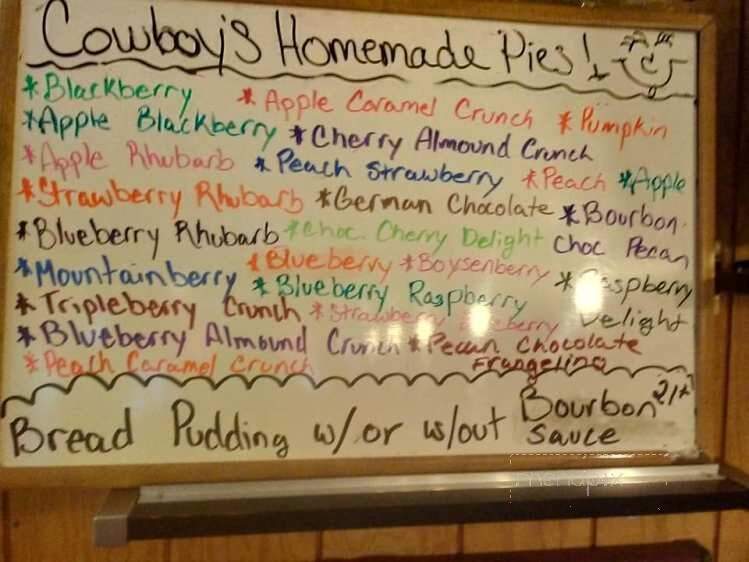 Cowboy's Homemade Pies!
*Blackberry *Apple Caramel Crunch *Pumpkin
*Apple Blackberry *Cherry Almound Crunch
*Apple Rhubarb *Peach Strawberry *Peach *Apple
*Strawberry Rhubarb *German Chocolate *Bourbon
*Blueberry Rhubarb *Choc. Cherry Delight Choc Pecan
*Mountainberry *Blueberry *Boysenberry *Raspberry
*Blueberry Raspberry Delight
*Tripleberry Crunch *Strawberry
*Blueberry Almound Crunch *Pecan Chocolate
*Peach Caramel Crunch Frangelino
Bread Pudding w/ or w/out Bourbon 21+
Sauce